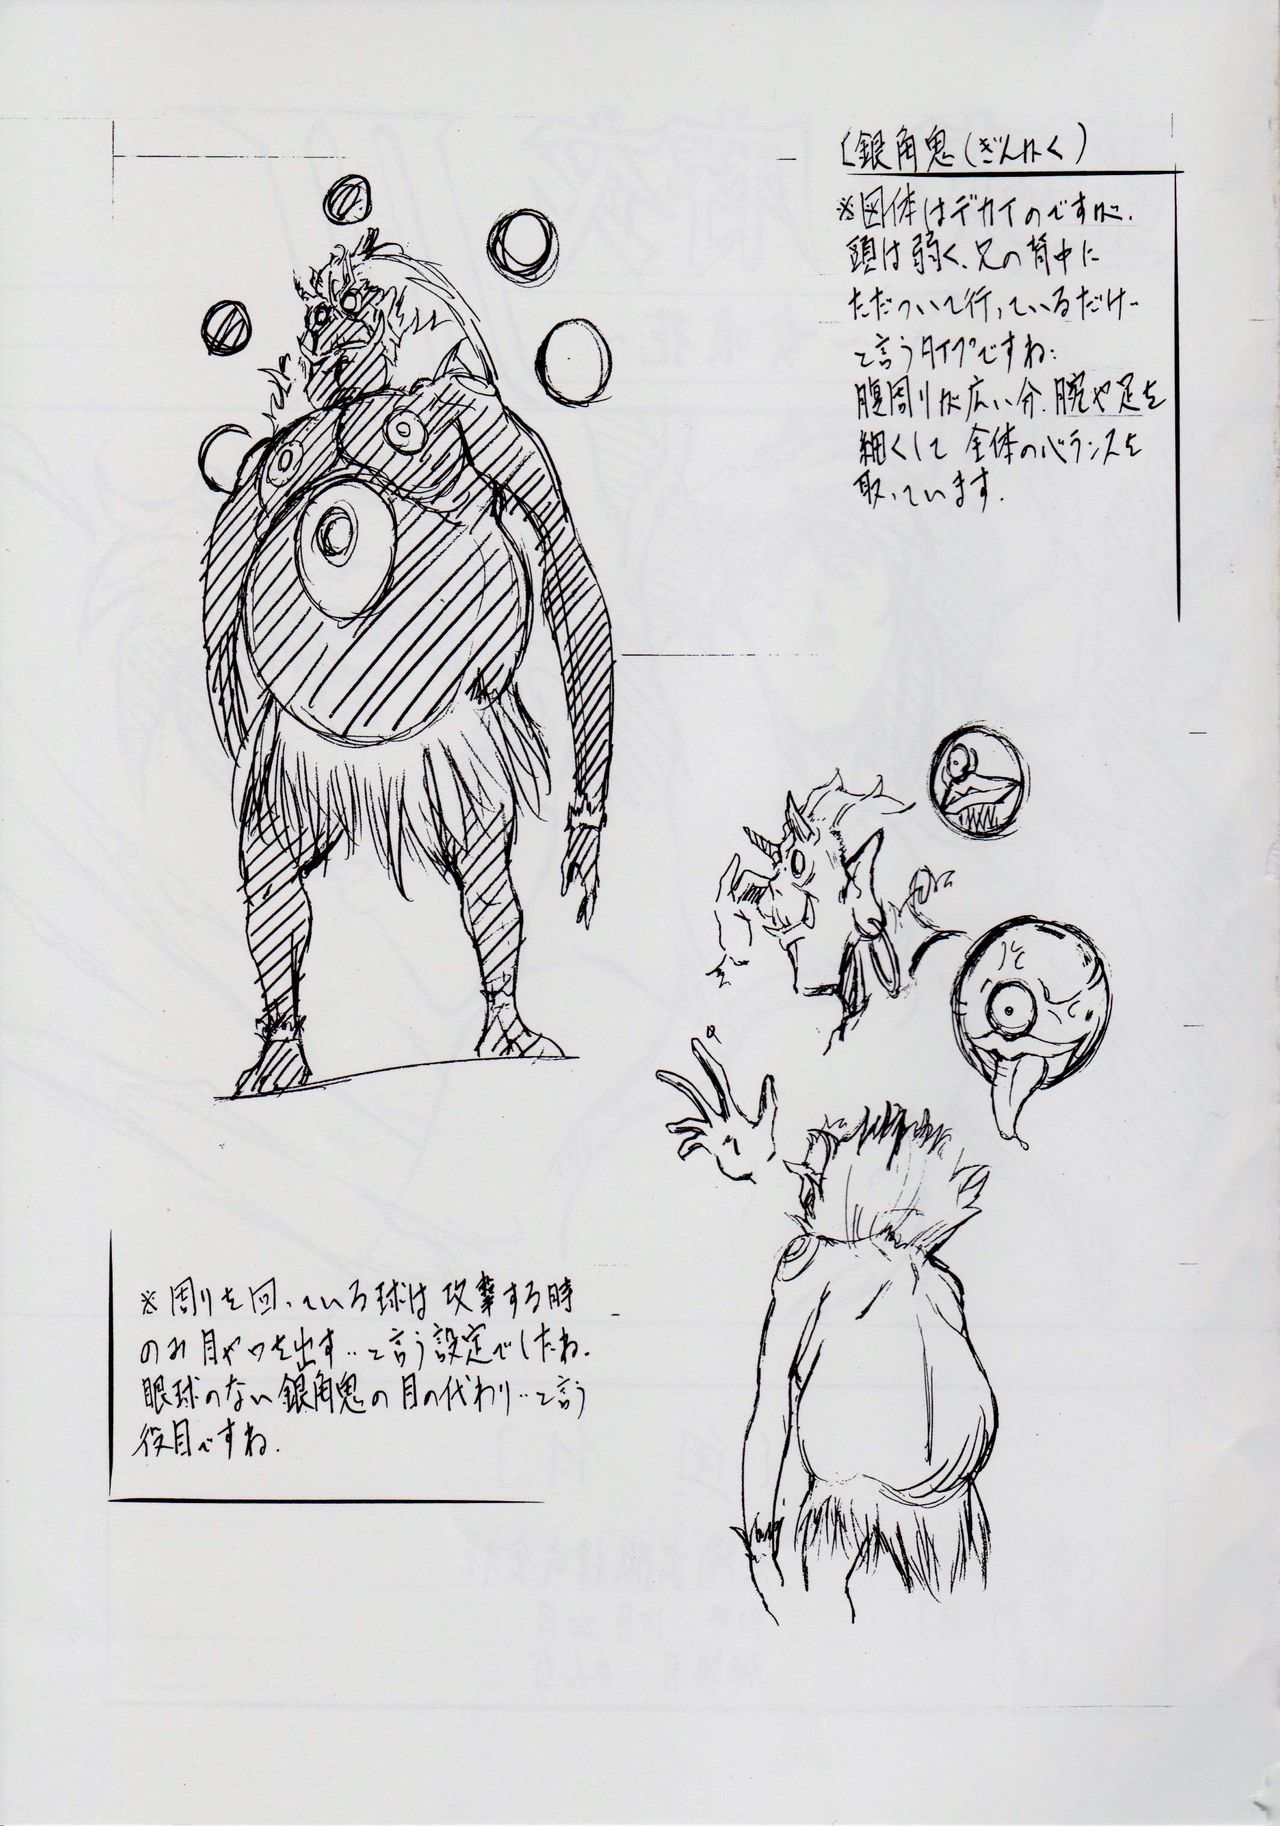 〔銀角鬼(ぎんかく)
※図体はデカイのですが、
頭は弱く、兄の背中に
ただついて行っているだけ…
と言うタイプですね。
腹周りが広い分、腕や足を
細くして全体のバランスを
取っています。
※周りを回っている球は攻撃する時
のみ目や口を出す…と言う設定でしたね。
眼球のない銀角鬼の目の代わり…と言う
役目ですね。